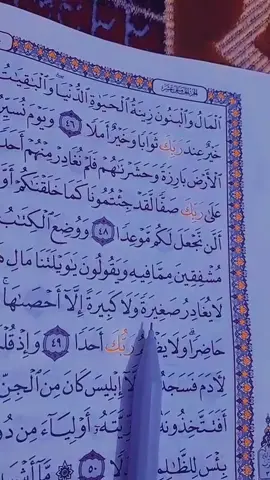 ٱلْمَالُ وَٱلْبَنُونَ زِينَةُ ٱلْحَيَوٰةِ ٱلدُّنْيَا وَٱلْبَٰقِيَٰتُ
خَيْرٌ عِندَ رَبِّكَ ثَوَابًا وَخَيْرٌ أَمَلًا ٤٦ وَيَوْمَ نُسَيِّرُ
ٱلْأَرْضَ بَارِزَةً وَحَشَرْنَٰهُمْ فَلَمْ نُغَادِرْ مِنْهُمْ أَحَدًا
عَلَىٰ رَبِّكَ صَفًّا لَّقَدْ جِئْتُمُونَا كَمَا خَلَقْنَٰكُمْ أَوَّ
أَلَّن نَّجْعَلَ لَكُم مَّوْعِدًا ٤٨ وَوُضِعَ ٱلْكِتَٰبُ
مُشْفِقِينَ مِمَّا فِيهِ وَيَقُولُونَ يَٰوَيْلَتَنَا مَالِ
لَا يُغَادِرُ صَغِيرَةً وَلَا كَبِيرَةً إِلَّآ أَحْصَىٰهَا
حَاضِرًا وَلَا رَبُّكَ أَحَدًا ٤٩ وَإِذْ قُلْ
لِءَادَمَ فَسَجَدُ إِبْلِيسَ كَانَ مِنَ ٱلْجِنِّ
أَفَتَتَّخِذُونَهُ أَوْلِيَآءَ مِن دُو
بِئْسَ ٥٠ مَّآ